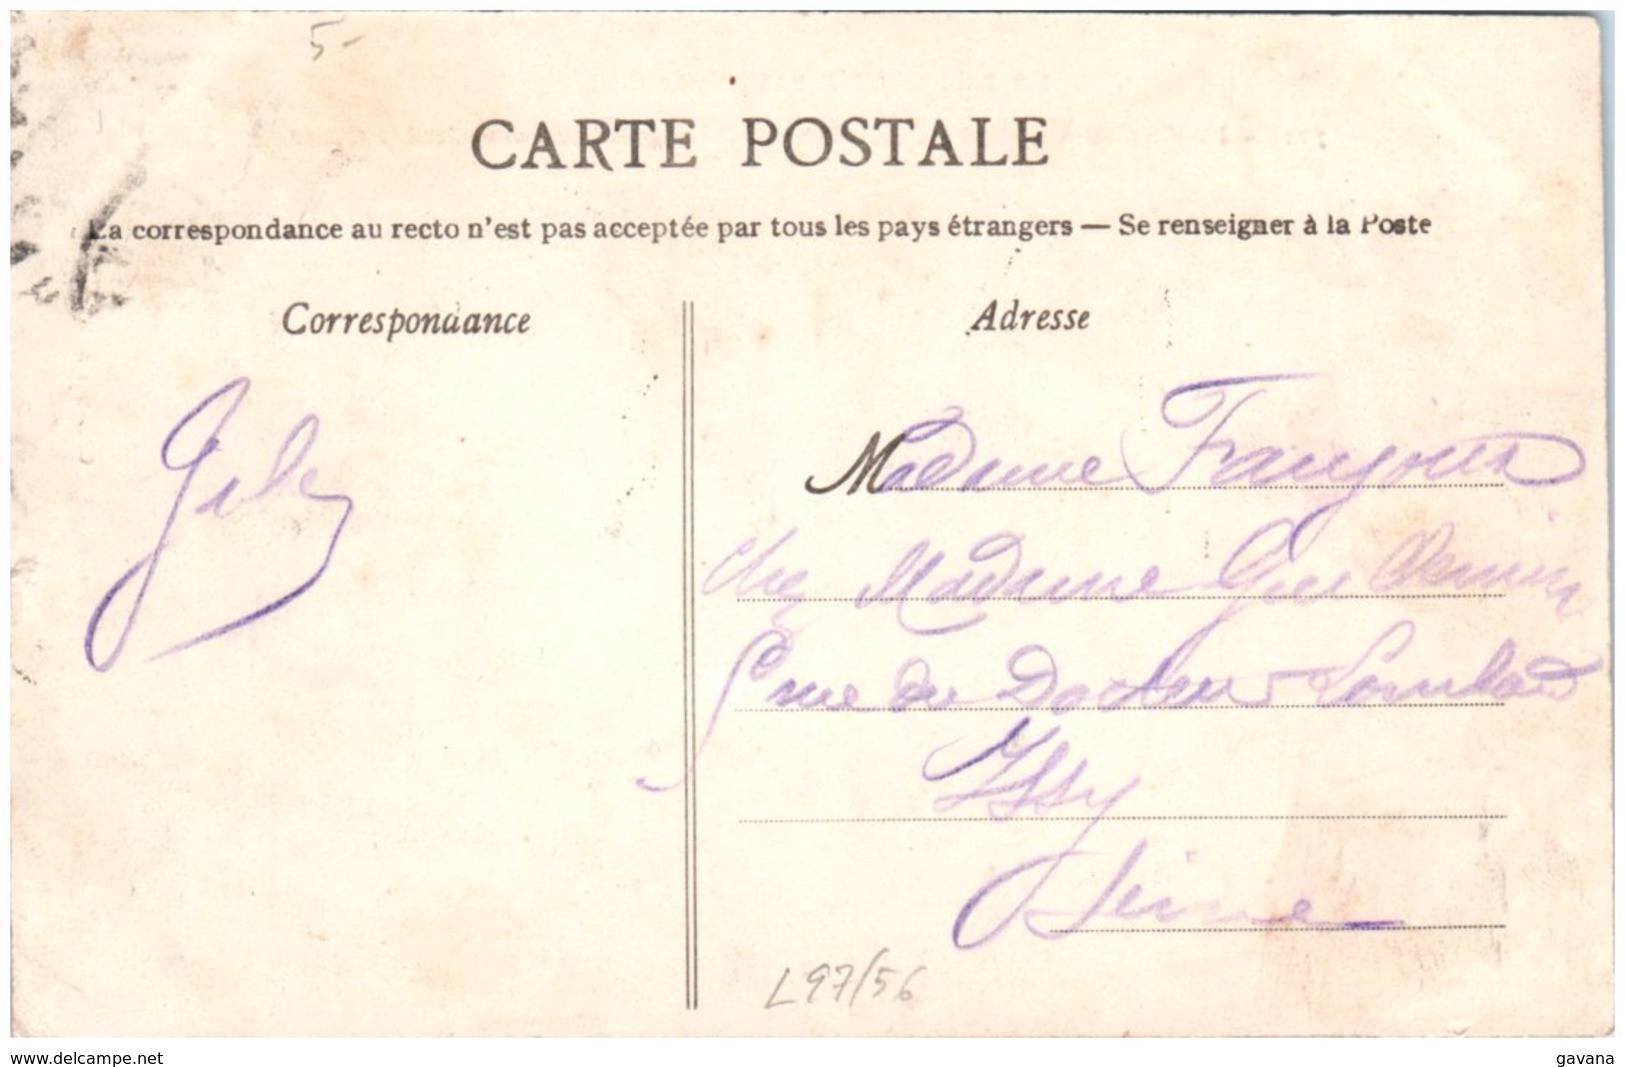 5-
CARTE POSTALE
La correspondance au recto n'est pas acceptée par tous les pays étrangers — Se renseigner à la Poste
Correspondance
Adresse
Madame
chez Madame
rue du Docteur Lombard
Issy
Seine
L97/56
www.delcampe.net
gavana